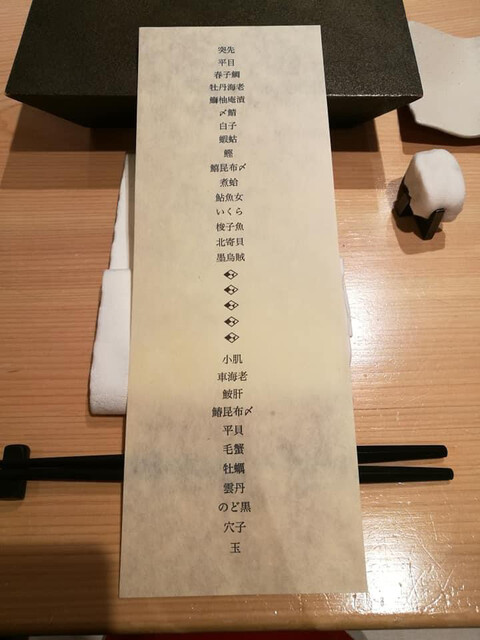 突先
平目
春子鯛
牡丹海老
鰤柚庵漬
〆鯖
白子
蝦蛄
鰹
鰭昆布〆
煮蛤
鮎魚女
いくら
梭子魚
北寄貝
墨烏賊
小肌
車海老
鮟肝
鰆昆布〆
平貝
毛蟹
牡蠣
雲丹
のど黒
穴子
玉